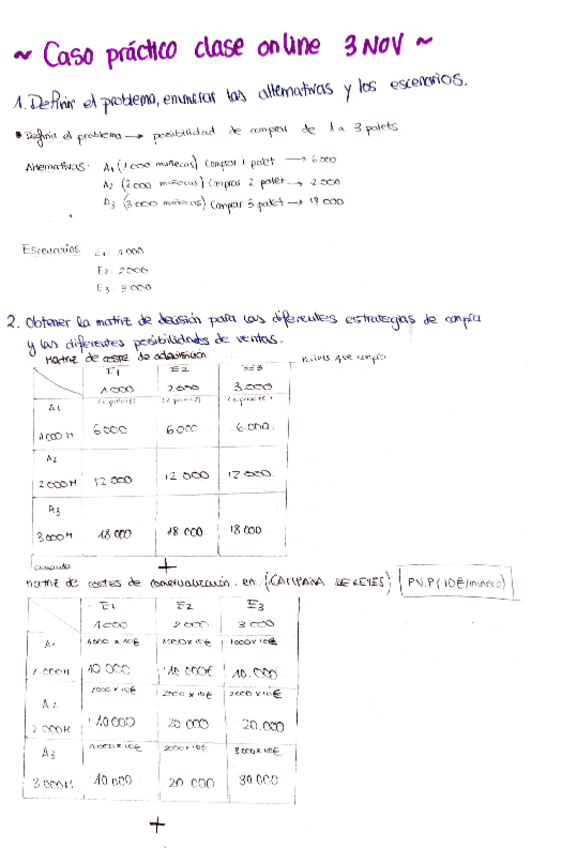 ~ Caso práctico clase online 3 NOV ~
1. Definir el problema, enumerar las alternativas y los escenarios.
Definir el problema → posibilidad de comprar de 1 a 3 palets
Alternativas: A1 (1000 muñecos) comprar 1 palet → 6000
A2 (2000 muñecos) compras 2 palet → 2.000
A3 (3000 muñecos) comprar 3 palet → 18 000
Escenarios E1: 1000
E2: 2000
E3: 3000
2. Obtener la matriz de decisión para las diferentes estrategias de compra
y las diferentes posibilidades de ventas.
Matriz de coste de adquisición
E1 E2
1000 2.000 3.000
A1
1000 M 6000 6000 6.000
A2
2000 M 12 000 12 000 12 000
A3
3000 M 18 000 18 000 18 000
+
Matriz de costes de comercialización en (CAMPAÑA DE REYES) P.V.P (10€/muñeco)
E1 E2 E3
1000 2000 3000
A1 1000 x 10€ 1000 x 10€ 1000 x 10€
1000M 10 000 10 000€ 10.000
A2 1000 x 10€ 2000 x 10€ 2000 x 10€
2000M 10000 20 000 20.000
A3 1000 x 10€ 2000 x 10€ 3000 x 10€
3000M 10 000 20 000 30 000
+